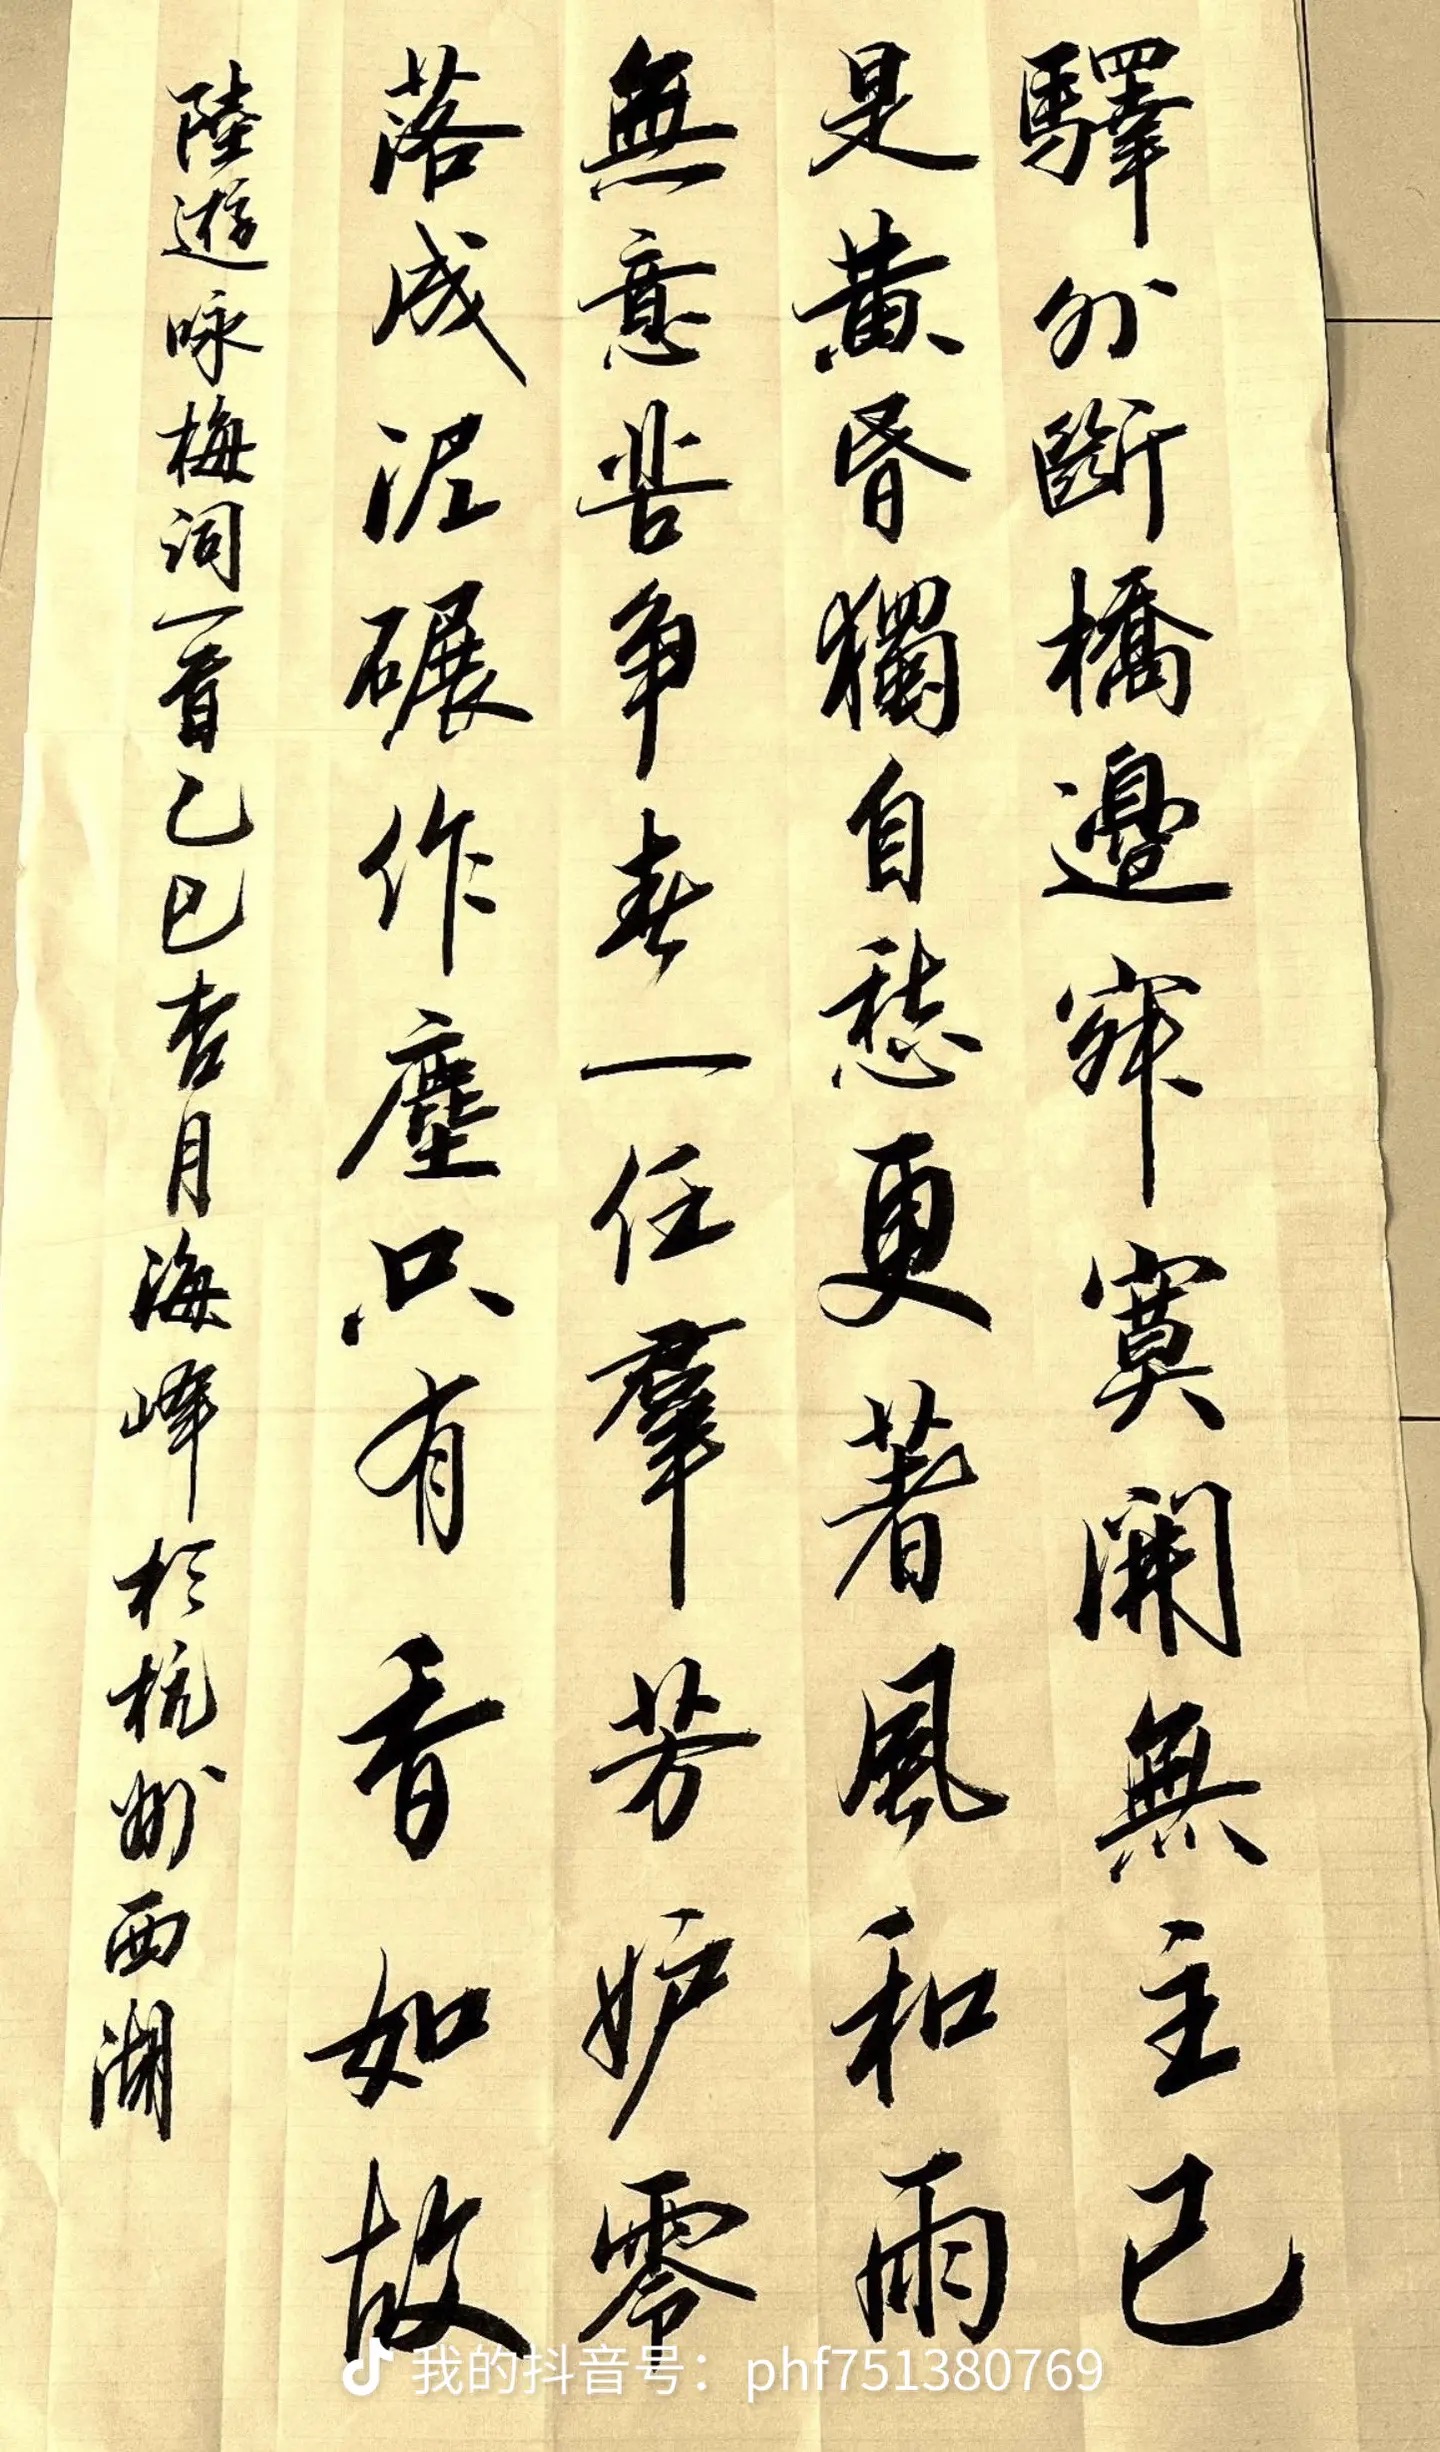 驛外斷橋邊寂寞開無主已
是黃昏獨自愁更著風和雨
無意苦争春一任羣芳妒零
落成泥碾作塵只有香如故
陸遊咏梅詞一首乙巳杏月海峰於杭州西湖
我的抖音号：phf751380769